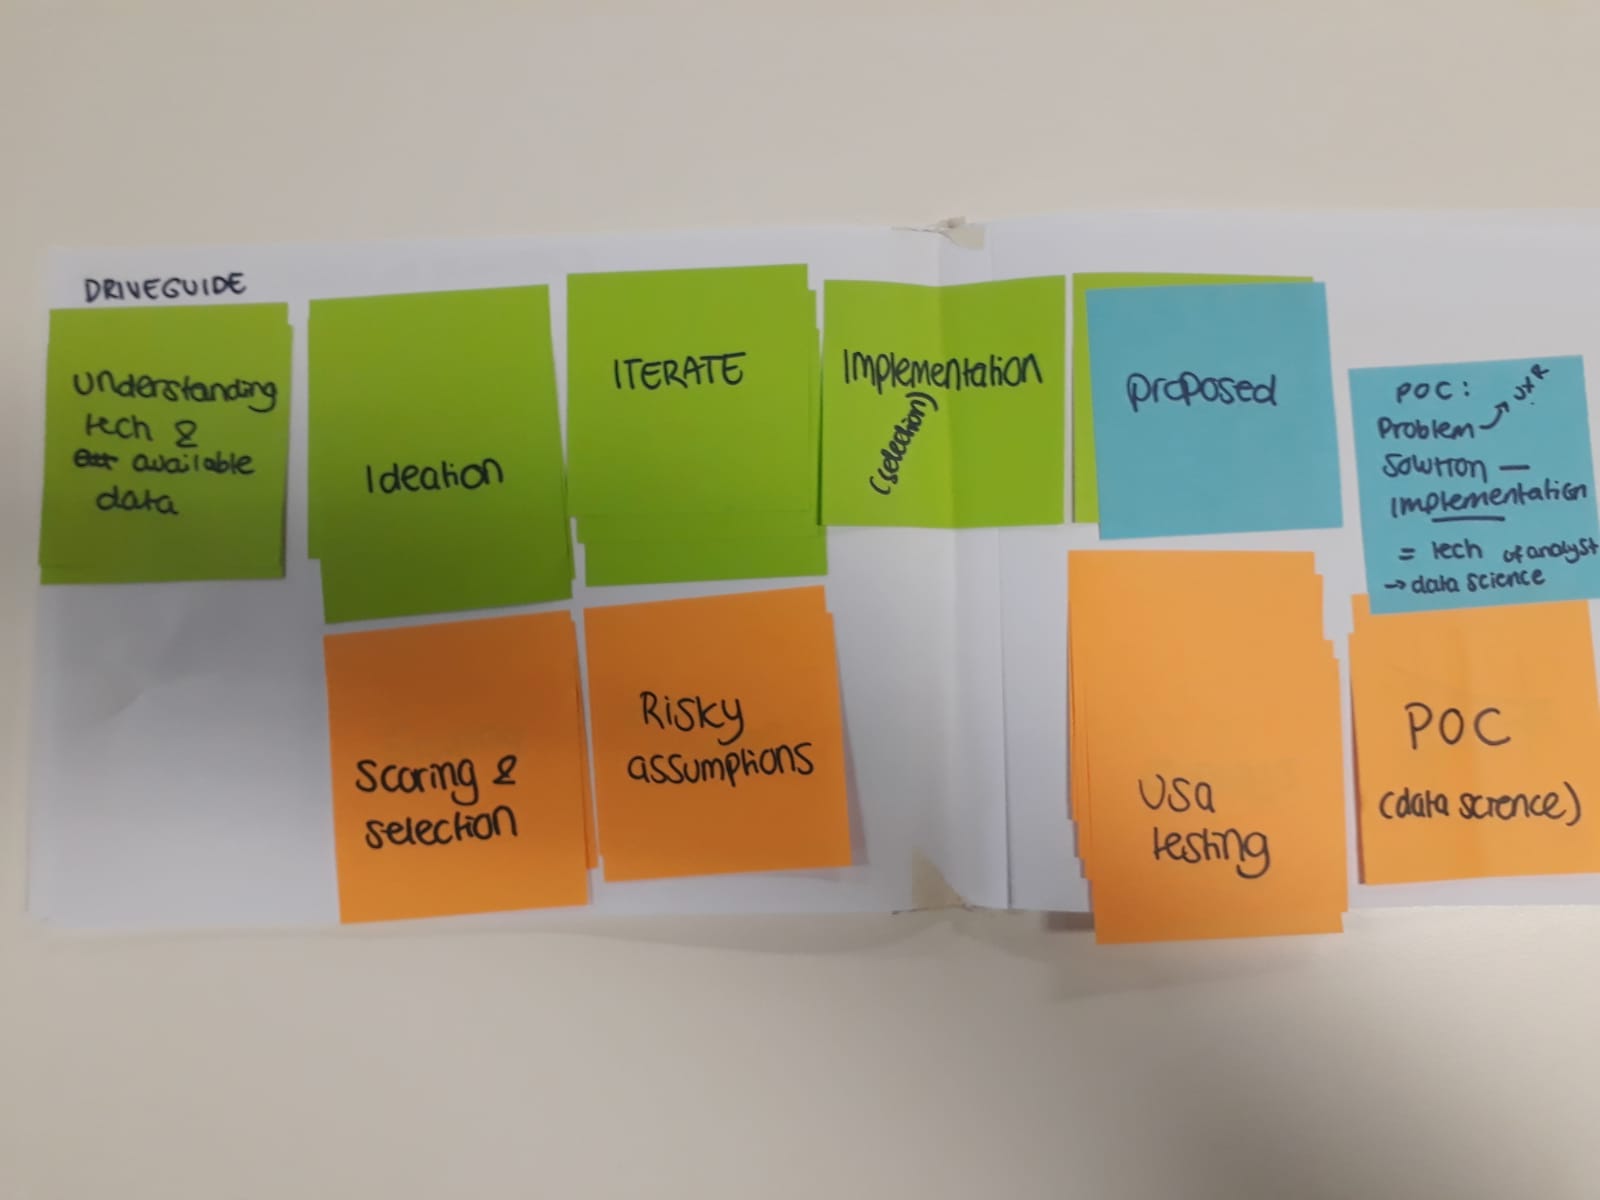 DRIVEGUIDE
understanding
tech &
available
data
Ideation
ITERATE
Implementation
(selection)
proposed
POC:
Problem
UXR
Solution —
Implementation
= tech of analyst
→ data science
Scoring &
selection
Risky
assumptions
USA
testing
POC
(data science)